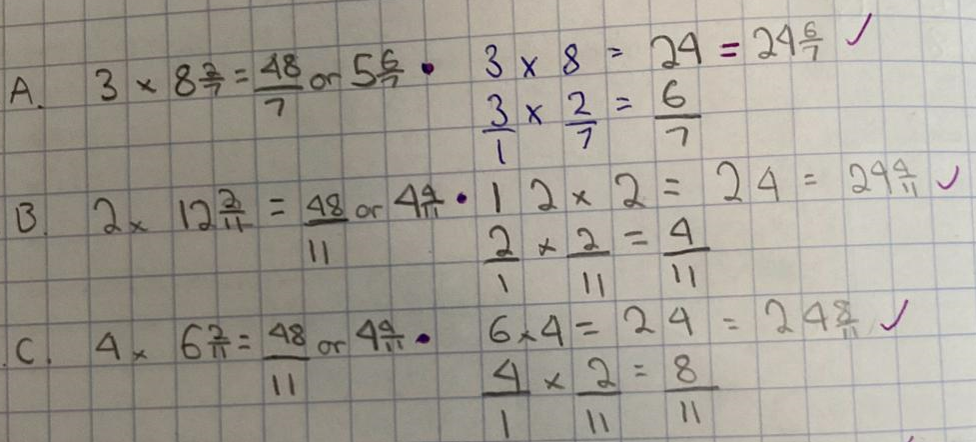 A. 3 × 8 2/7 = 48/7 or 5 6/7 • 3 × 8 = 24 = 24 6/7 ✓
3/1 × 2/7 = 6/7
B. 2 × 12 2/11 = 48/11 or 4 4/11 • 12 × 2 = 24 = 24 4/11 ✓
2/1 × 2/11 = 4/11
C. 4 × 6 2/11 = 48/11 or 4 4/11 • 6 × 4 = 24 = 24 8/11 ✓
4/1 × 2/11 = 8/11